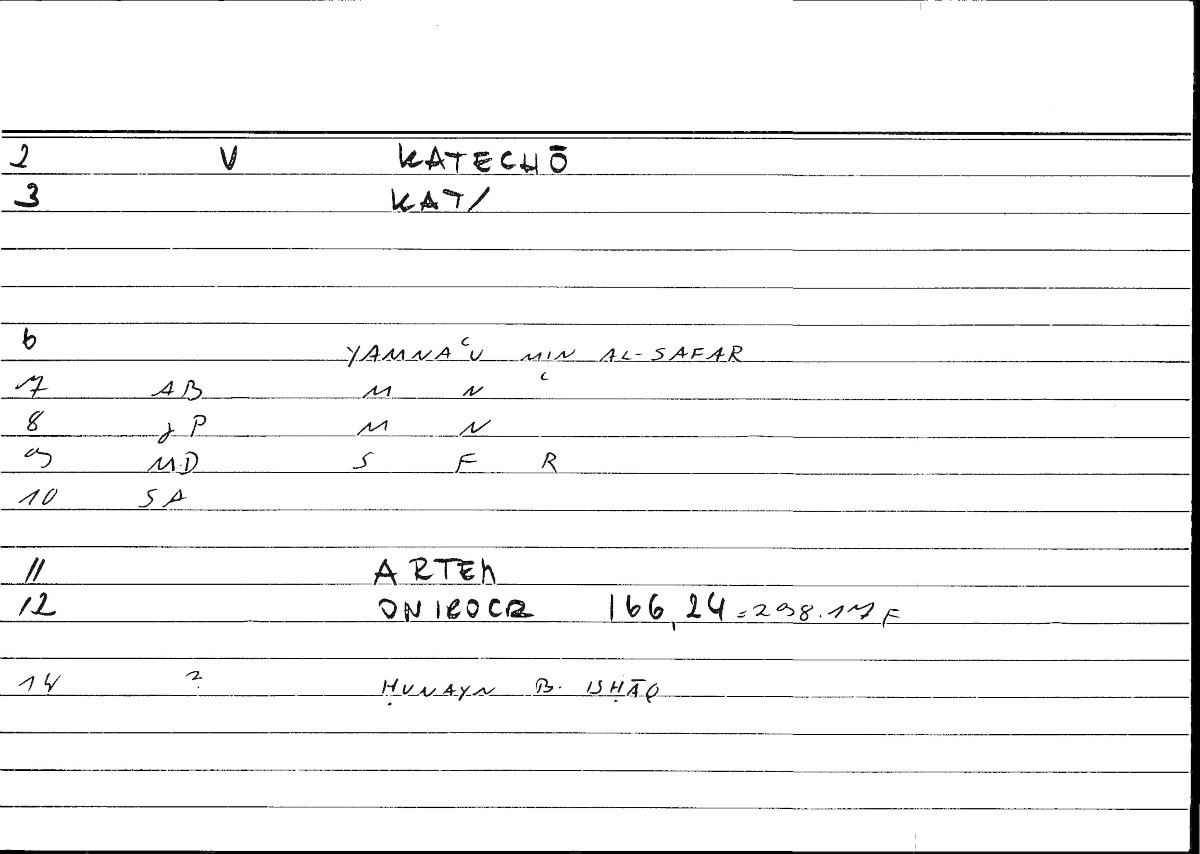 2 V KATECHŌ
3 KAT/
6 YAMNAʿU MIN AL-SAFAR
7 AB M N ʿ
8 P M N
9 MD S F R
10 SA
11 ARTEM
12 ONIROCR 166,24 = 298.17 F
14 ? ḤUNAYN B. ISḤĀQ